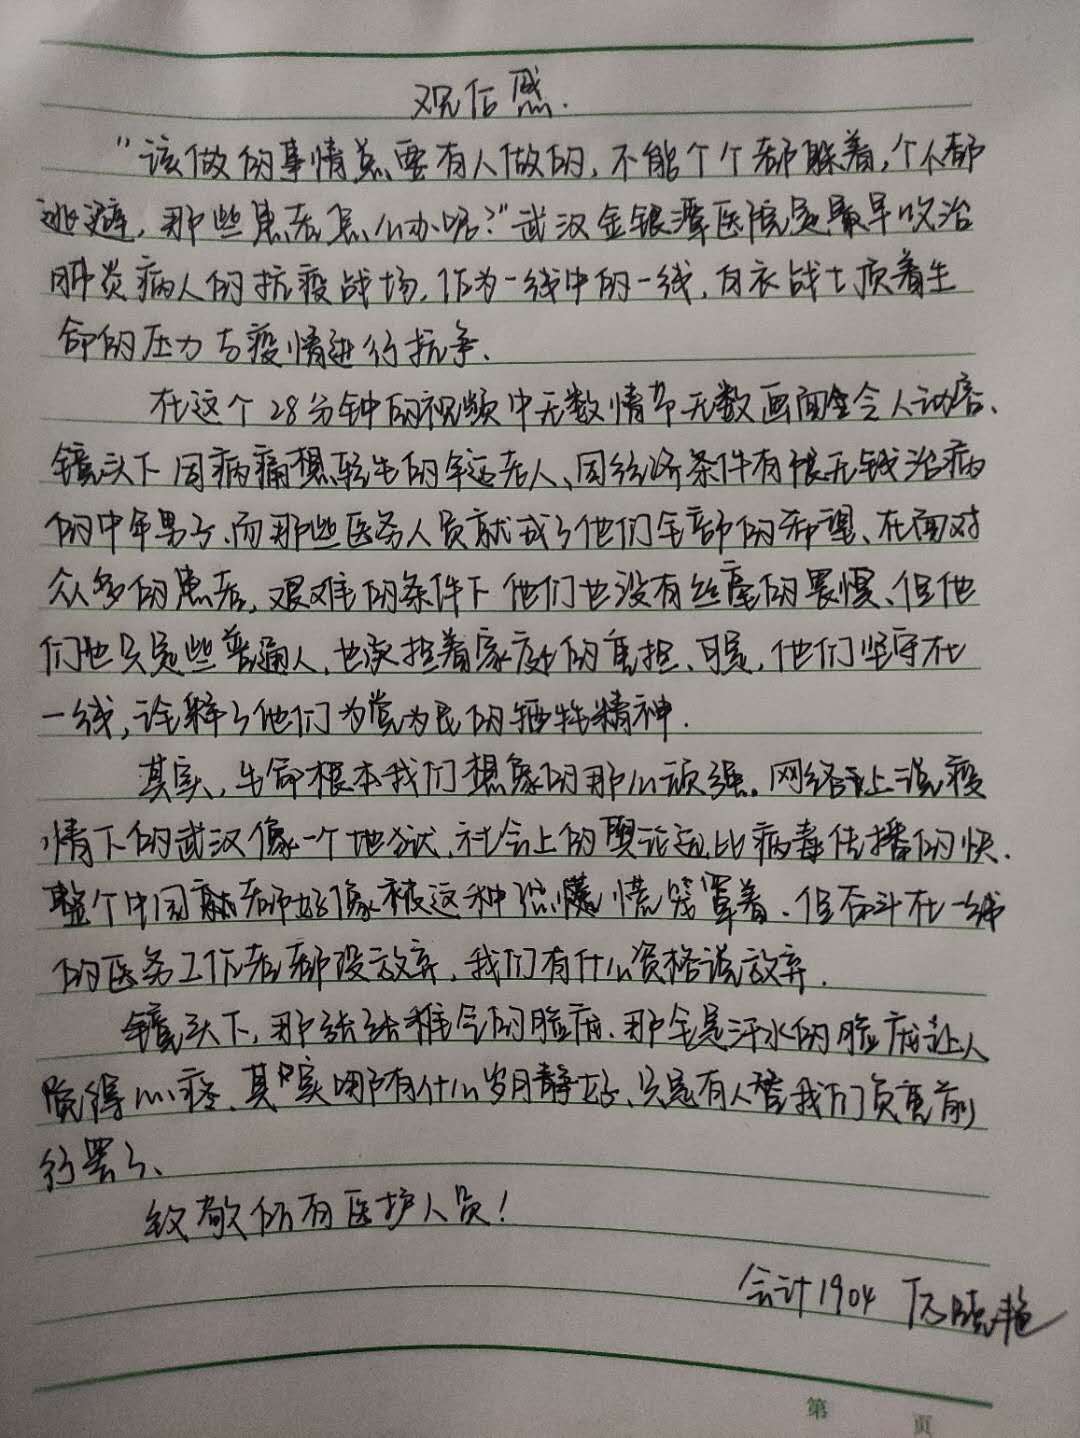 观后感.
"该做的事情总要有人做的,不能个个都躲着,个个都
逃避,那些患者怎么办呢?"武汉金银潭医院是最早收治
肺炎病人的抗疫战场,作为一线中的一线,白衣战士顶着生
命的压力与疫情进行抗争、
在这个28分钟的视频中无数情节无数画面全令人动容、
镜头下因病痛想轻生的年迈老人、因经济条件有限无钱治病
的中年男子、而那些医务人员就成了他们全部的希望、在面对
众多的患者,艰难的条件下他们也没有丝毫的畏惧、但他
们也只是些普通人,也承担着家庭的重担、可是,他们坚守在
一线,诠释了他们为党为民的牺牲精神.
其实,生命根本我们想象的那么顽强。网络上说疫
情下的武汉像一个地狱,社会上的舆论远比病毒传播的快.
整个中国都好像被这种恐慌笼罩着.但奋斗在一线
的医务工作者都没放弃,我们有什么资格说放弃.
镜头下,那张张稚气的脸庞.那全是汗水的脸庞让人
觉得心疼、其实哪有什么岁月静好、只是有人替我们负重前
行罢了、
致敬所有医护人员!
会计1904 晓艳
第 页